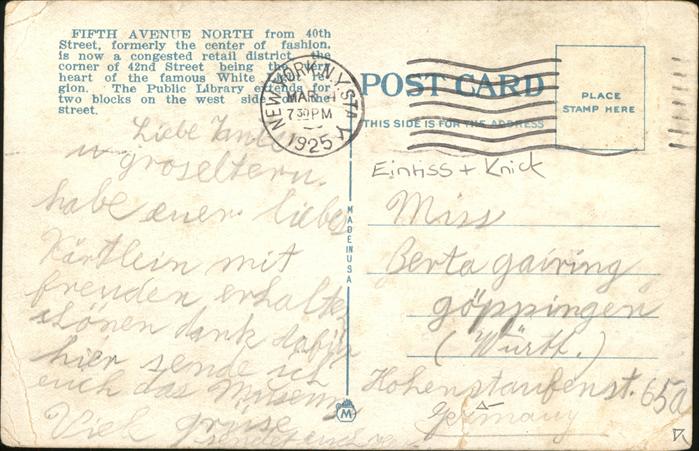 FIFTH AVENUE NORTH from 40th
Street, formerly the center of fashion,
is now a congested retail district, the
corner of 42nd Street being the very
heart of the famous White
gion. The Public Library extends for
two blocks on the west side of the
street.
NEW YORK, N.Y. STA. K
MAR
7 30 PM
1925
POST CARD
THIS SIDE IS FOR THE ADDRESS
PLACE
STAMP HERE
Einriss + Knick
MADE IN USA
M
Liebe
u groseltern.
habe euer liebes
Kärtlein mit
freuden erhalten
schönen dank dafür
hier sende ich
euch das Museum
Viele grüse
sendet euch
Miss
Berta gairing
göppingen
(Württ.)
Hohenstaufenst. 65a
Germany